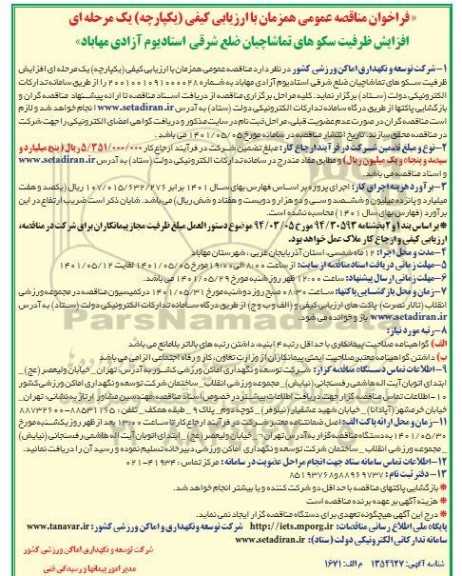 «فراخوان مناقصه عمومی همزمان با ارزیابی کیفی (یکپارچه) یک مرحله ای
افزایش ظرفیت سکو های تماشاچیان ضلع شرقی استادیوم آزادی مهاباد»
۱-شرکت توسعه و نگهداری اماکن ورزشی کشور در نظر دارد مناقصه عمومی همزمان با ارزیابی کیفی (یکپارچه) یک مرحله ای افزایش
ظرفیت سکو های تماشاچیان ضلع شرقی استادیوم آزادی مهاباد به شماره ۲۰۰۱۰۰۱۰۹۱۰۰۰۰۲۸ را از طریق سامانه تدارکات
الکترونیکی دولت (ستاد) برگزار نماید. کلیه مراحل برگزاری مناقصه از دریافت اسناد مناقصه تا ارائه پیشنهاد مناقصه گران و
بازگشایی پاکتها از طریق درگاه سامانه تدارکات الکترونیکی دولت (ستاد) به آدرس www.setadiran.ir انجام خواهد شد و لازم
است مناقصه گران در صورت عدم عضویت قبلی، مراحل ثبت نام در سایت مذکور و دریافت گواهی امضای الکترونیکی را جهت شرکت
در مناقصه محقق سازند. تاریخ انتشار مناقصه در سامانه مورخ ۱۴۰۱/۰۵/۰۵ می باشد.
۲-نوع و مبلغ تضمین شرکت در فرآیند ارجاع کار: مبلغ تضمین شرکت در فرآیند ارجاع کار ۵/۳۵۱/۰۰۰/۰۰۰ ریال (پنج میلیارد و
سیصد و پنجاه و یک میلیون ریال) و مطابق مفاد مندرج در سامانه تدارکات الکترونیکی دولت (ستاد) به آدرس www.setadiran.ir
و اسناد مناقصه می باشد.
۳-برآورد هزینه اجرای کار: اجرای پروژه بر اساس فهارس بهای سال ۱۴۰۱ برابر ۱۰۷/۰۱۵/۶۳۲/۲۷۶ ریال (یکصد و هفت
میلیارد و پانزده میلیون و ششصد و سی و دو هزار و دویست و هفتاد و شش ریال) می باشد. شایان ذکر است ضریب ارتفاع در این
برآورد (فهارس بهای سال ۱۴۰۱) محاسبه نشده است.
* بر اساس بند ۱ و ۲ بخشنامه ۹۴/۳۰۵۹۳ مورخ ۹۴/۰۳/۰۵ موضوع دستورالعمل مبلغ ظرفیت مجاز پیمانکاران برای شرکت در مناقصه،
ارزیابی کیفی و ارجاع کار ملاک عمل خواهد بود.
۴-مدت و محل اجرا: ۱۲ ماه شمسی، استان آذربایجان غربی، شهرستان مهاباد
۵-مهلت زمانی دریافت اسناد مناقصه از سایت: از ساعت ۸:۰۰ الی ۱۹:۰۰ مورخ ۱۴۰۱/۰۵/۰۵ لغایت ۱۴۰۱/۰۵/۱۲
۶-مهلت زمانی ارسال پیشنهاد: ساعت ۱۲:۰۰ ظهر روز شنبه مورخ ۱۴۰۱/۰۵/۲۹ می باشد.
۷-زمان و محل بازگشایی پاکتها: ساعت ۰۸:۳۰ صبح روز دوشنبه مورخ ۱۴۰۱/۰۵/۳۱ در کمیسیون مناقصه در مجموعه ورزشی
انقلاب (تالار نصرت) پاکت های ارزیابی کیفی و (الف و ب و ج) از طریق درگاه سامانه تدارکات الکترونیکی دولت (ستاد) به آدرس
www.setadiran.ir باز و خوانده می شود.
۸-رتبه مورد نیاز:
الف) گواهینامه صلاحیت پیمانکاری با حداقل رتبه ۴ ابنیه. داشتن رتبه های بالاتر بلامانع می باشد
ب) داشتن گواهینامه معتبر صلاحیت ایمنی پیمانکاران از وزارت تعاون، کار و رفاه اجتماعی الزامی می باشد
۹-اطلاعات تماس دستگاه مناقصه گزار: شرکت توسعه و نگهداری اماکن ورزشی کشور به آدرس: تهران_ خیابان ولیعصر (عج)_
ابتدای اتوبان آیت اله هاشمی رفسنجانی (نیایش)_ مجموعه ورزشی انقلاب_ ساختمان شرکت توسعه و نگهداری اماکن ورزشی کشور
۱۰-اطلاعات تماس مناقصه گزار جهت دریافت اطلاعات بیشتر در خصوص اسناد مناقصه: مهندسین مشاور ارتاژ بام‌مانی: تهران_
خیابان خرمشهر (آپادانا)_ خیابان شهید عشقیار (نیلوفر)_ کوچه دوم_ پلاک ۹_ طبقه همکف_ تلفن: ۸۸۵۳۱۱۶۵-۸۸۷۳۲۶۰۰
۱۱-زمان و محل ارائه پاکت الف: اصل ضمانتنامه معتبر شرکت در فرآیند ارجاع کار تا ساعت ۱۰:۰۰ بعد از ظهر روز یکشنبه مورخ
۱۴۰۱/۰۵/۳۰ به دستگاه مناقصه گزار به آدرس تهران_ خیابان ولیعصر (عج)_ ابتدای اتوبان آیت اله هاشمی رفسنجانی (نیایش)
_ مجموعه ورزشی انقلاب_ ساختمان شرکت توسعه و نگهداری اماکن ورزشی دبیرخانه تسلیم نموده و رسید آن را دریافت نمایید.
۱۲-اطلاعات تماس سامانه ستاد جهت انجام مراحل عضویت در سامانه: مرکز تماس: ۴۱۹۳۴-۰۲۱
۱۳-دفتر ثبت نام: ۸۸۹۶۹۷۳۷ و ۸۵۱۹۳۷۶۸
* بازگشایی پاکتهای مناقصه با حداقل دو شرکت کننده و یا بیشتر انجام خواهد شد.
* هزینه آگهی بر عهده برنده مناقصه است
* درج این آگهی هیچگونه تعهدی برای دستگاه مناقصه گزار ایجاد نمی نماید.
پایگاه ملی اطلاع رسانی مناقصات: http://iets.mporg.ir شرکت توسعه و نگهداری و اماکن ورزشی کشور: www.tanavar.ir
سامانه تدارکاتی الکترونیکی دولت (ستاد): www.setadiran.ir
شرکت توسعه و نگهداری اماکن ورزشی کشور
مدیر امور پیمانها و رسیدگی فنی
شناسه آگهی: ۱۳۵۴۹۲۷ م الف: ۱۶۷۱